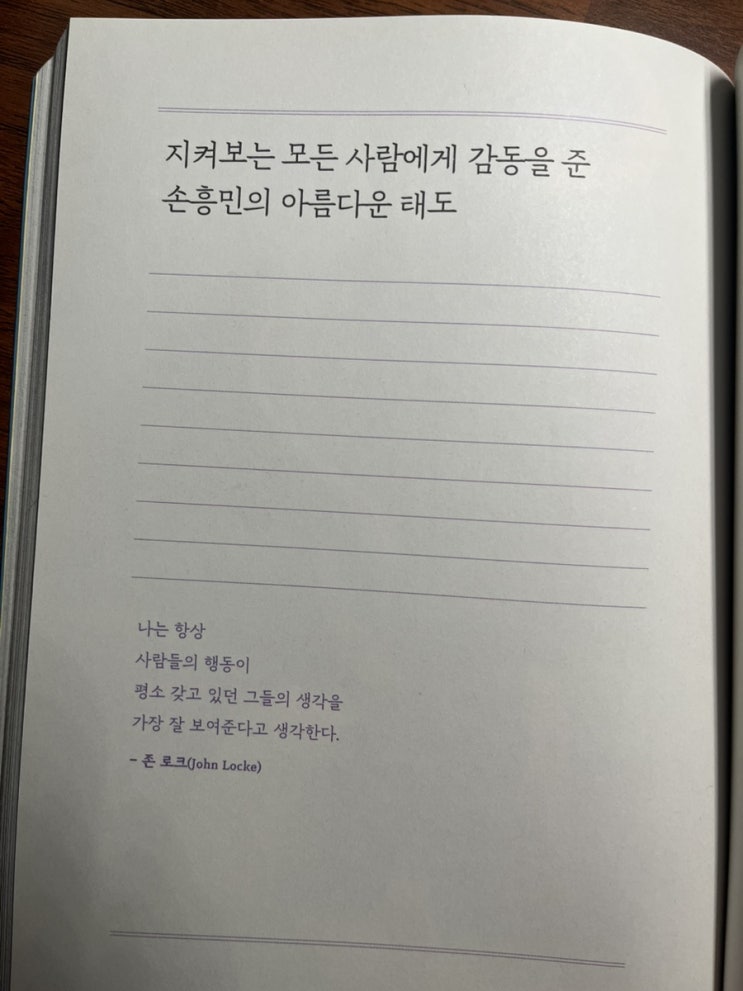 지켜보는 모든 사람에게 감동을 준
손흥민의 아름다운 태도
나는 항상
사람들의 행동이
평소 갖고 있던 그들의 생각을
가장 잘 보여준다고 생각한다.
– 존 로크(John Locke)